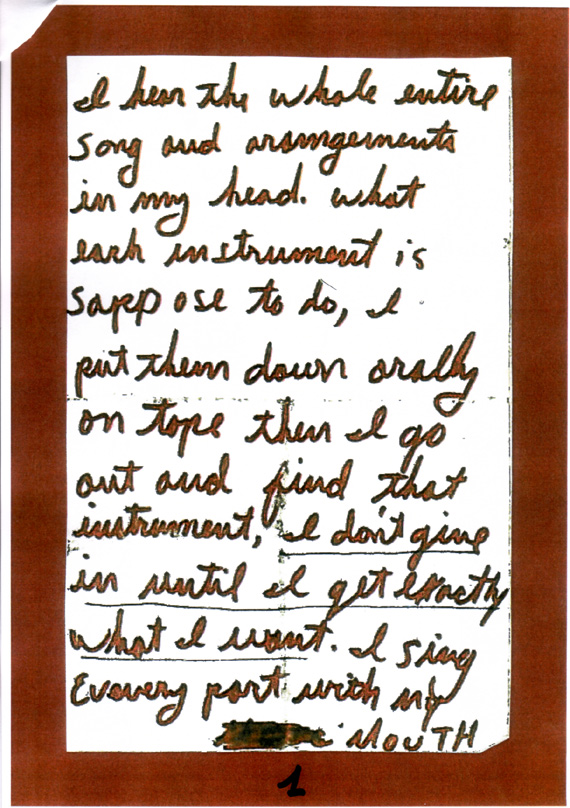 I hear the whole entire
song and aramgements
in my head. what
each instrument is
sappose to do, I
put them down orally
on tape then I go
out and find that
instrument, I don't give
in until I get exactly
what I want. I sing
Evavery part with my
MOUTH
1